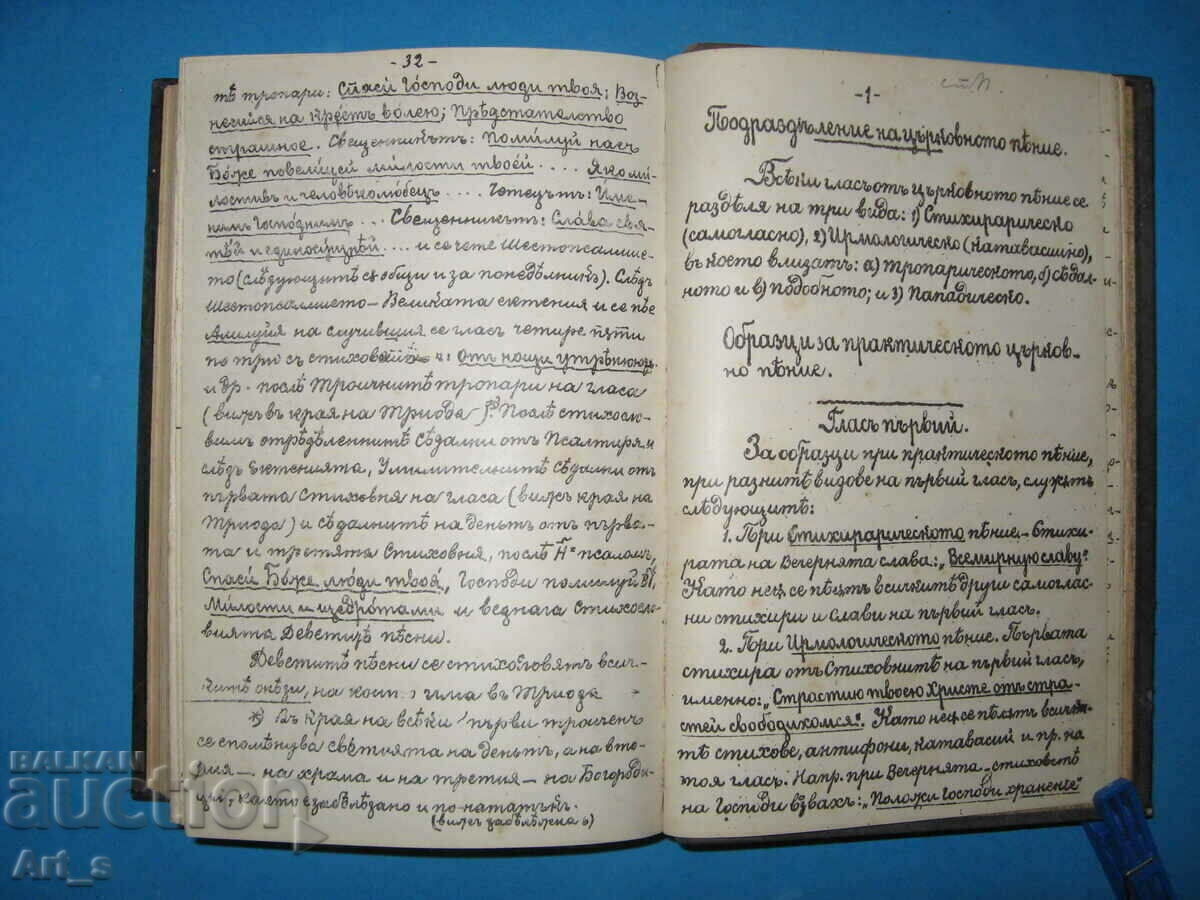 - 32 -
тѣ тропари: Спаси Господи люди твоя; Воз-
несийся на крестъ волею; Прѣдстателство
страшное. Свещенникътъ: Помилуй насъ
Боже повелицей милости твоей .... Яко ми-
лостивъ и человѣколюбецъ .... Четецътъ: Име-
немъ Господнимъ ... Свещенникътъ: Слава свя-
тѣй и единосущнѣй .... и се чете Шестопсалми-
ето (слѣдующитѣ сѫ общи и за понедѣлникъ). Слѣдъ
Шестопсалмието — Великата ектения и се пѣе
Алилуия на случившия се гласъ четире пѫти
по три съ стиховетѣ отъ нощи утрѣнюютъ
и др. послѣ Троичнитѣ тропари на гласа
(вижъ въ края на Триода). Послѣ стихосло-
вимъ отрѣдѣленнитѣ Сѣдални отъ Псалтиря и
слѣдъ Ектенията, Умилителнитѣ сѣдални отъ
първата стиховня на гласа (вижъ края на
Триода) и сѣдалнитѣ на деньтъ отъ първа-
та и третята Стиховня, послѣ Н̃ псаломъ,
Спаси Боже люди твоя, Господи помилуй ВІ,
Милости и щедротами и веднага стихосло-
вията Деветихъ пѣсни.
Деветитѣ пѣсни се стихословятъ всич-
китѣ онѣзи, на кои има въ Триода
*) Въ края на всѣки първи троиченъ
се споменува светията на деньтъ, а на вто-
рия — на храма и на третия — на Богороди-
ца, както е забѣлѣзано и по-нататъкъ.
(вижъ забѣлѣжка 6)
- 1 -
Подраздѣление на църковното пѣние.
Всѣки гласъ отъ църковното пѣние се
раздѣля на три вида: 1) Стихирарическо
(самогласно), 2) Ирмологическо (катавасийно),
въ което влизатъ: а) тропарическото, б) сѣдал-
ното и в) подобното; и 3) Пападическо.
Образци за практическото църков-
но пѣние.
Гласъ първий.
За образци при практическото пѣние,
при разнитѣ видове на първий гласъ, служятъ
слѣдующитѣ:
1. При Стихирарическото пѣние — Стихи-
рата на Вечернята слава: „Всемирную славу“
Като неѭ се пѣятъ всичкитѣ други самоглас-
ни стихири и Слави на първий гласъ.
2. При Ирмологическото пѣние. Първата
стихира отъ Стиховнитѣ на първий гласъ,
именно: „Страстию твоею Христе отъ стра-
стей свободихомся“. Като неѭ се пѣятъ всичкитѣ
тѣ стихове, антифони, катавасий и пр. на
тоя гласъ. Напр. при Вечернята — стиховетѣ
на Господи възвахъ: „Положи Господи хранение“
BALKAN
auction
Art_s